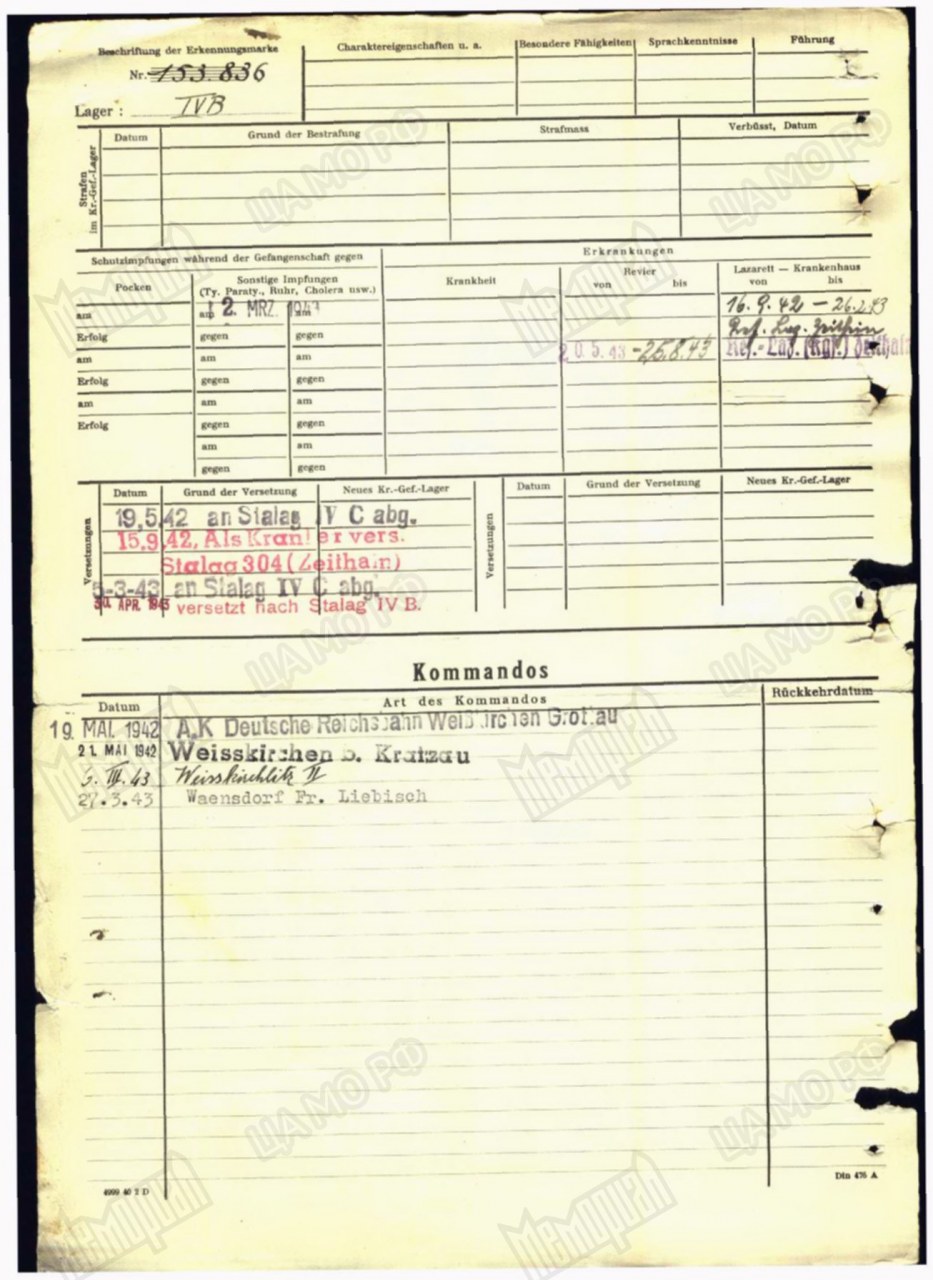 Beschriftung der Erkennungsmarke
Nr. 153.836
Lager : IVB
Charaktereigenschaften u. a.
Besondere Fähigkeiten
Sprachkenntnisse
Führung
Strafen
im Kr.-Gef.-Lager
Datum
Grund der Bestrafung
Strafmass
Verbüsst, Datum
Schutzimpfungen während der Gefangenschaft gegen
Erkrankungen
Pocken
Sonstige Impfungen
(Ty. Paraty., Ruhr, Cholera usw.)
Krankheit
Revier
von bis
Lazarett — Krankenhaus
von bis
am am 2. MRZ. am
16. 9. 42 — 26.2.43
Erfolg gegen gegen
Res. Laz. Zeithain
am am am
20.5.43 - 25.8.43 Res.-Laz. (Kgf.) Zeithain
Erfolg gegen gegen
am am am
Erfolg gegen gegen
am am
gegen gegen
Versetzungen
Datum Grund der Versetzung Neues Kr.-Gef.-Lager
19.5.42 an Stalag IV C abg.
15.9.42, Als Krank er vers.
Stalag 304 (Zeithain)
5-3-43 an Stalag IV C abg.
30. APR. 1943 versetzt nach Stalag IV B.
Versetzungen
Datum Grund der Versetzung Neues Kr.-Gef.-Lager
Kommandos
Datum Art des Kommandos Rückkehrdatum
19. MAI. 1942 A.K Deutsche Reichsbahn Weißkirchen Grottau
21. MAI 1942 Weisskirchen b. Kratzau
III. 43 Weisskirchlitz II
27.3.43 Waensdorf Fr. Liebisch
4999 40 2 D
Din 476 A
ЦАМО РФ
Мемориал